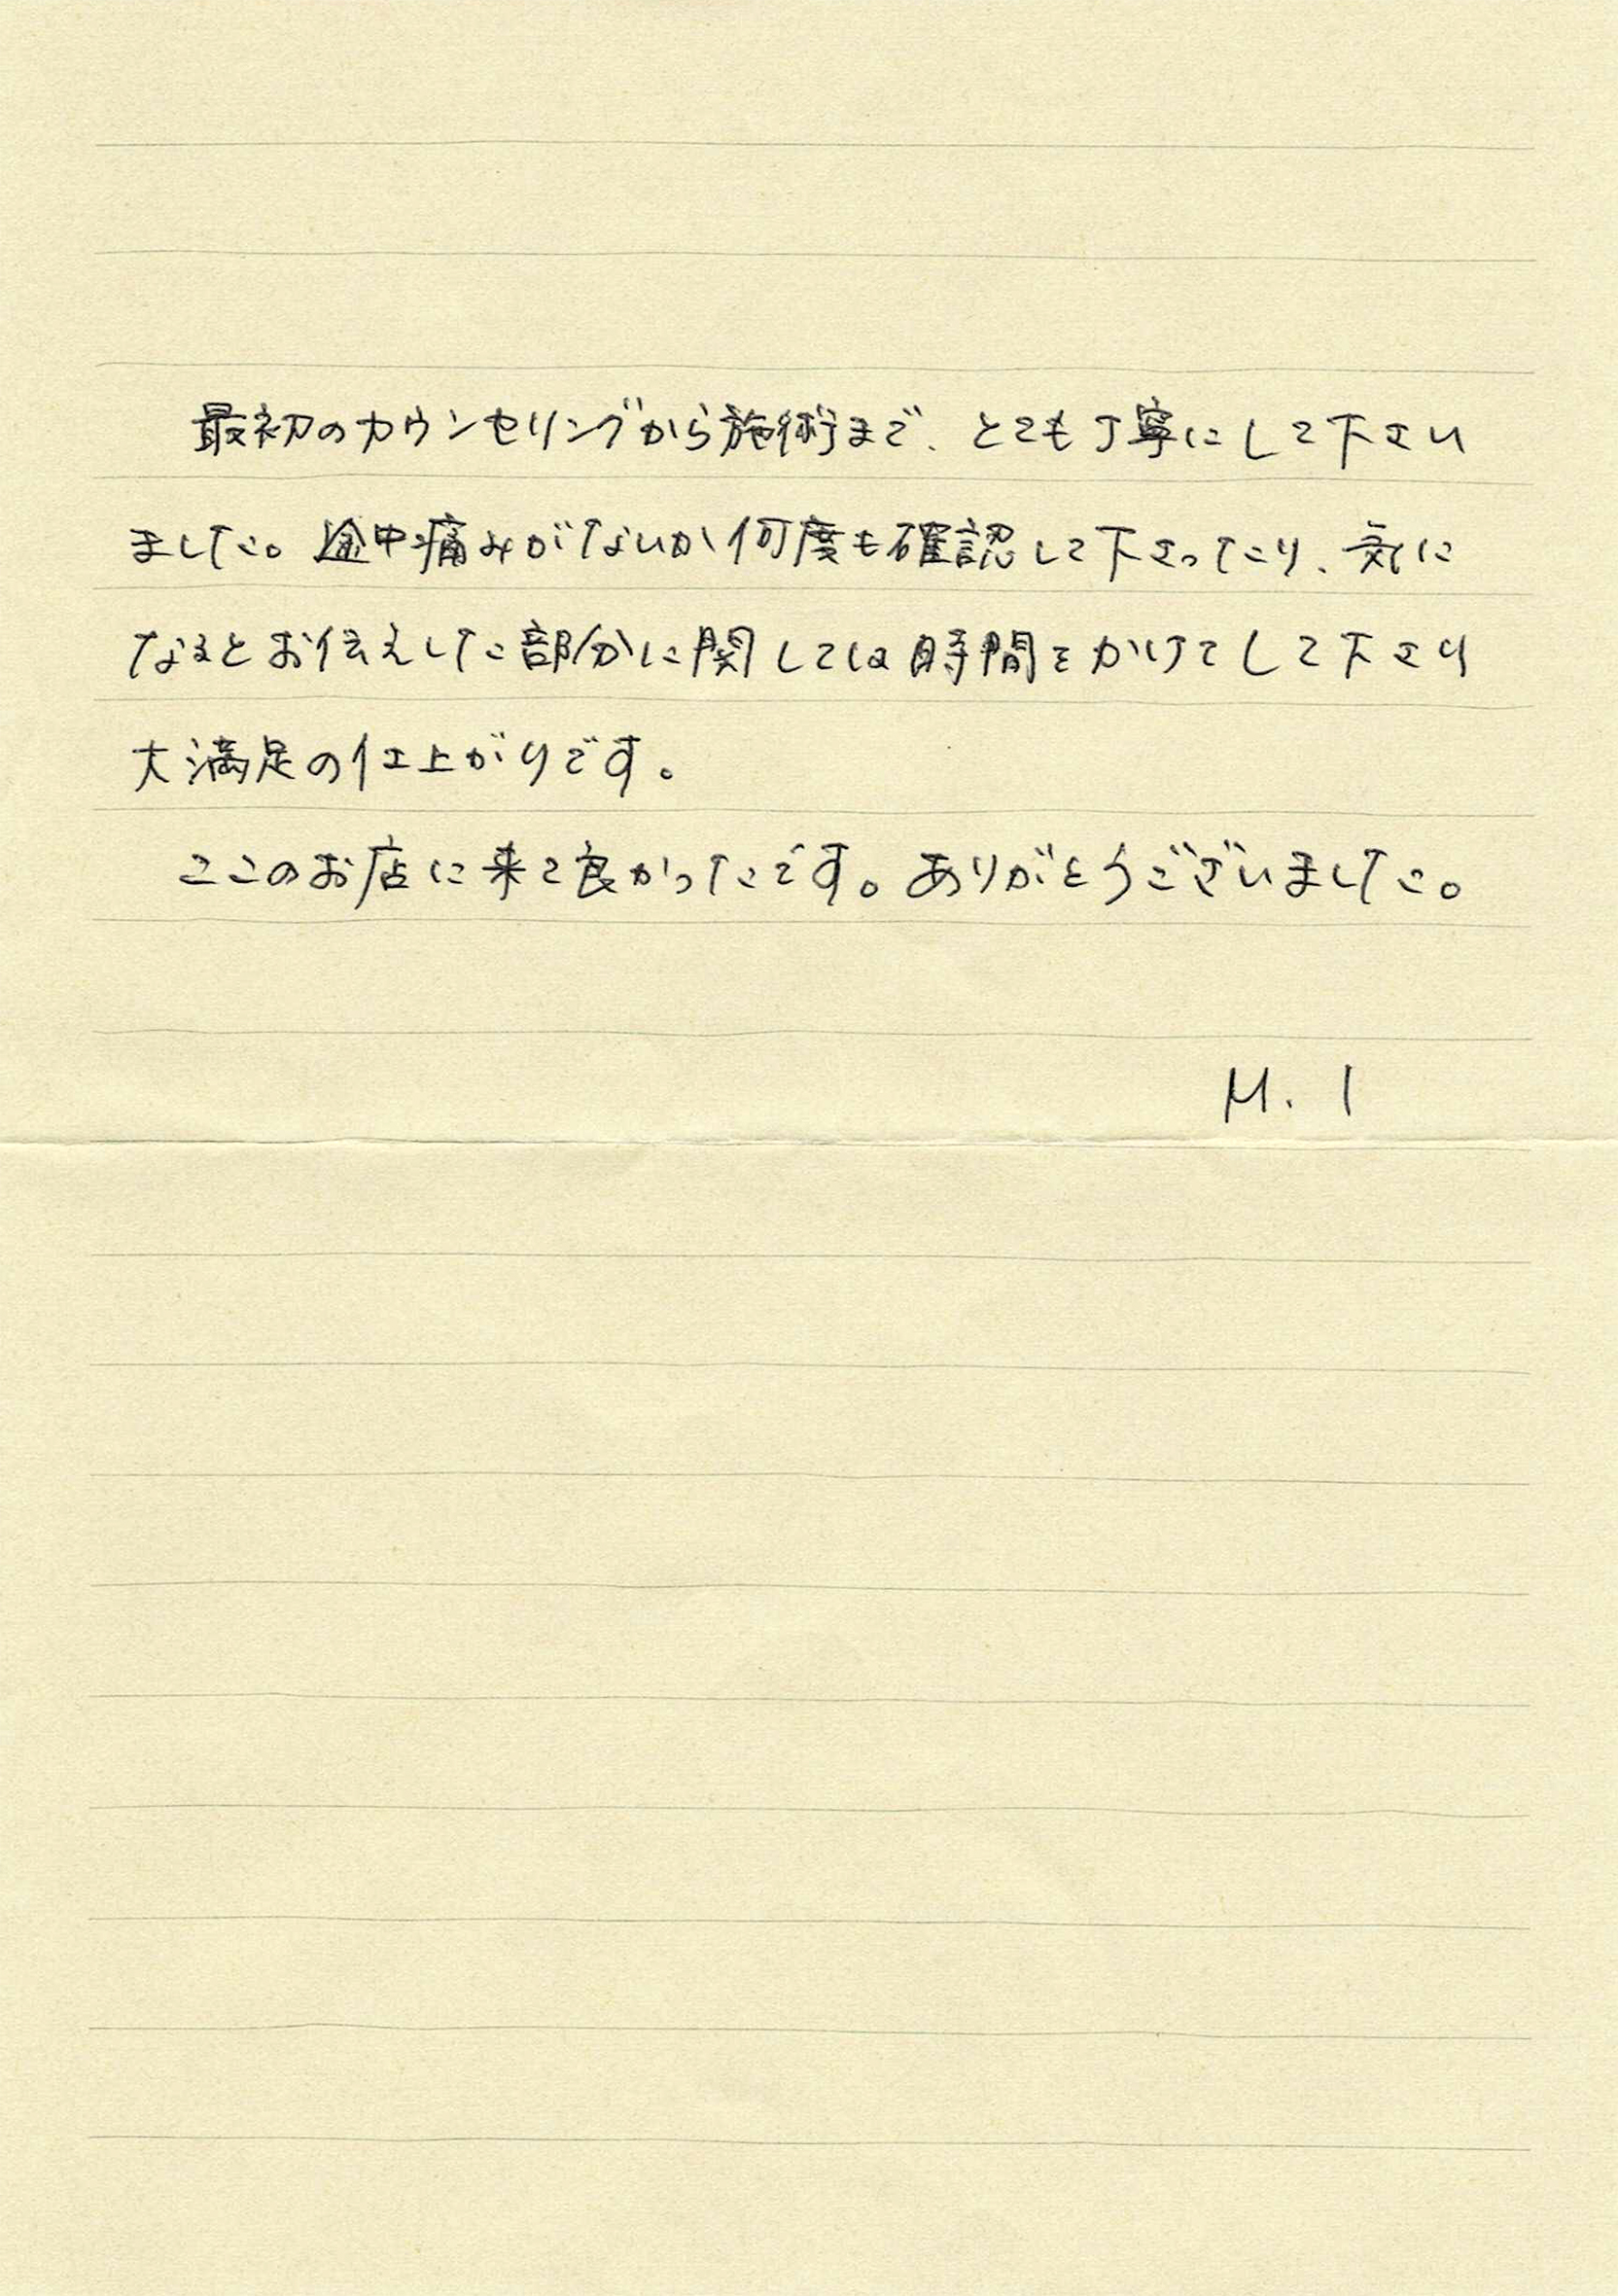 最初のカウンセリングから施術まで、とても丁寧にして下さい
ました。途中痛みがないか何度も確認して下さったり、気に
なるとお伝えした部分に関しては時間をかけてして下さり
大満足の仕上がりです。
ここのお店に来て良かったです。ありがとうございました。
M. I